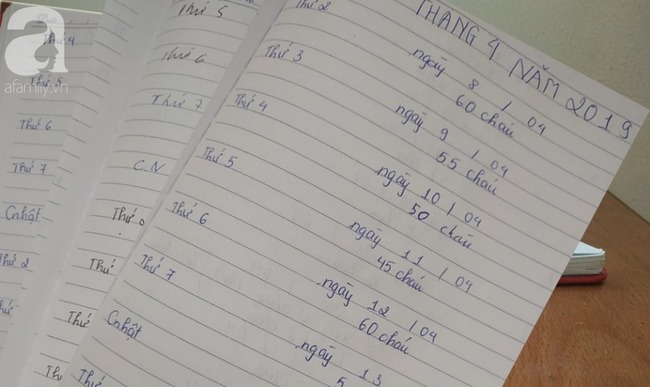 afamily.vn
Thứ 4
Thứ 5
Thứ 6
Thứ 7
Cnhật
Thứ 2
Thứ 5
Thứ 6
Thứ 7
C.N
Thứ
Thứ
Thứ
THÁNG 4 NĂM 2019
Thứ 2 ngày 8 / 04
60 cháu
Thứ 3 ngày 9 / 04
55 cháu
Thứ 4 ngày 10 / 04
50 cháu
Thứ 5 ngày 11 / 04
45 cháu
Thứ 6 ngày 12 / 04
60 cháu
Thứ 7 ngày 13
Cnhật
Thứ